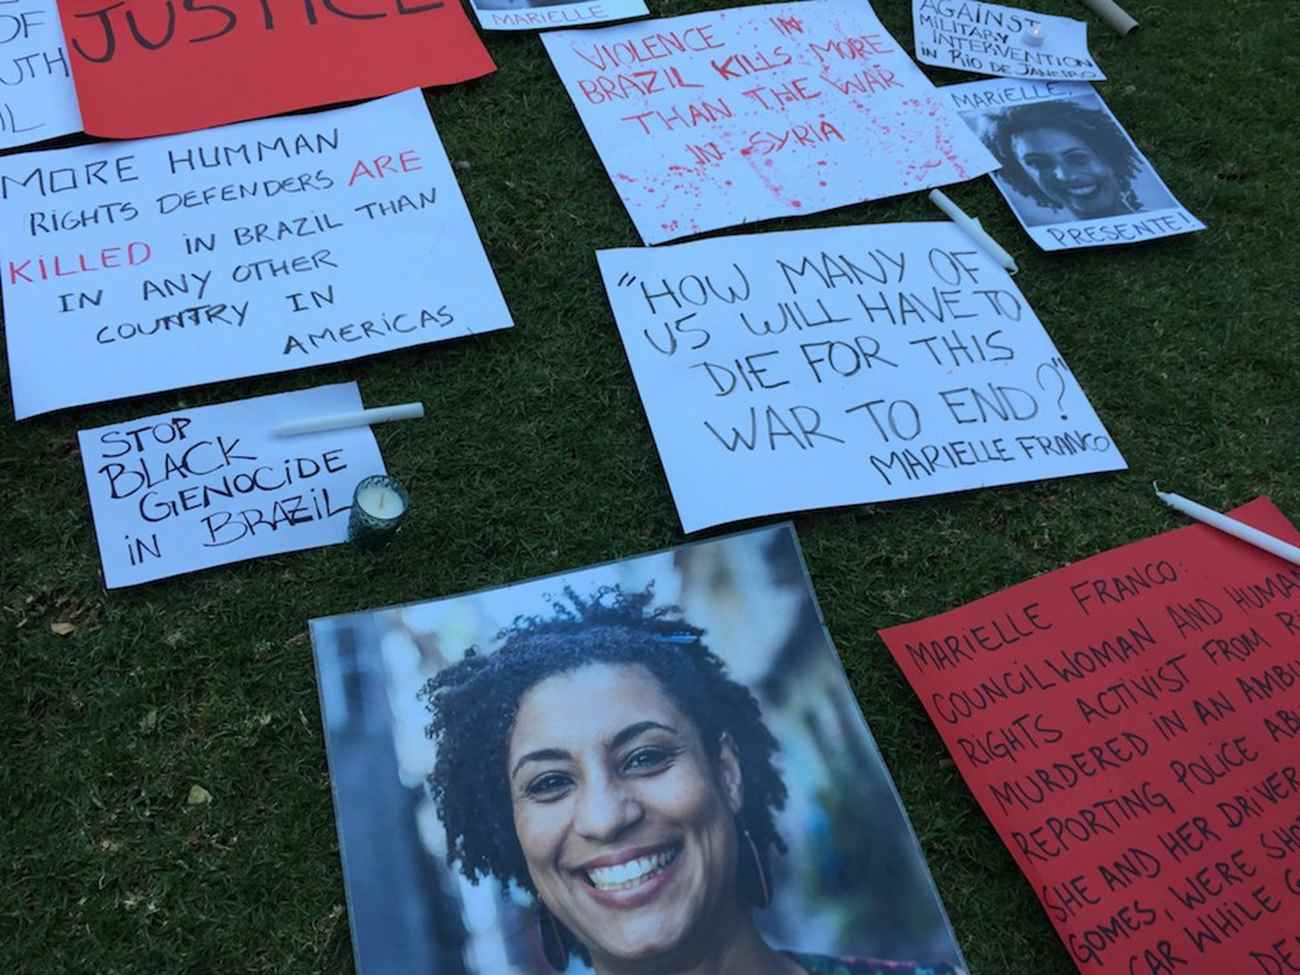 OF
UTH
IL
JUSTICE
MARIELLE
VIOLENCE IN
BRAZIL KILLS MORE
THAN THE WAR
IN SYRIA
AGAINST
MILITARY
INTERVENTION
IN RIO DE JANEIRO
MARIELLE,
PRESENTE!
MORE HUMMAN
RIGHTS DEFENDERS ARE
KILLED IN BRAZIL THAN
IN ANY OTHER
COUNTRY IN
AMERICAS
"HOW MANY OF
US WILL HAVE TO
DIE FOR THIS
WAR TO END?"
MARIELLE FRANCO
STOP
BLACK
GENOCIDE
IN BRAZIL
MARIELLE FRANCO:
COUNCILWOMAN AND HUMA
RIGHTS ACTIVIST FROM R
MURDERED IN AN AMBU
REPORTING POLICE AB
SHE AND HER DRIVER
GOMES, WERE SHO
CAR WHILE G
DE